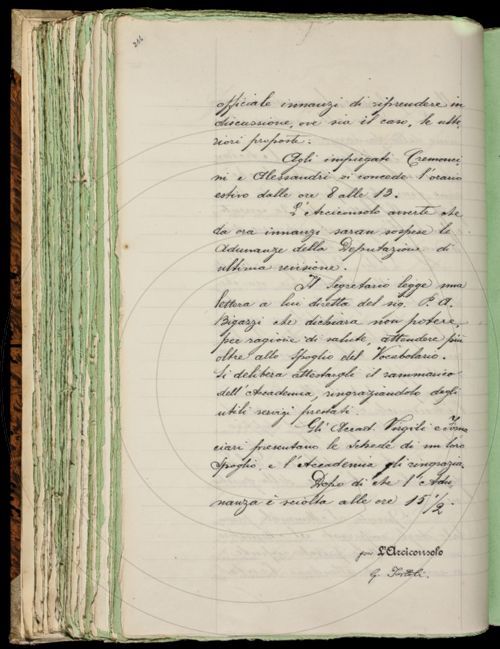 officiale innanzi di riprendere in
discussione, ove sia il caso, le ulte-
riori proposte.
Agli impiegati Cremonci-
ni e Alessandri si concede l'orario
estivo dalle ore 8 alle 13.
L'Arciconsolo averte che
da ora innanzi saran sospese le
Adunanze della Deputazione di
ultima revisione.
Il Segretario legge una
lettera a lui diretta del sig. P. A.
Bigazzi che dichiara non potere,
per ragione di salute, attendere più
oltre allo spoglio del Vocabolario.
Si delibera attestargli il rammarico
dell'Accademia, ringraziandolo degli
utili servigi prestati.
Gli Accad. Virgili e
ciari presentano le schede di un loro
spoglio, e l'Accademia gli ringrazia.
Dopo di che l'Adu-
nanza è sciolta alle ore 15 1/2.
L'Arciconsolo
G. Tortoli.